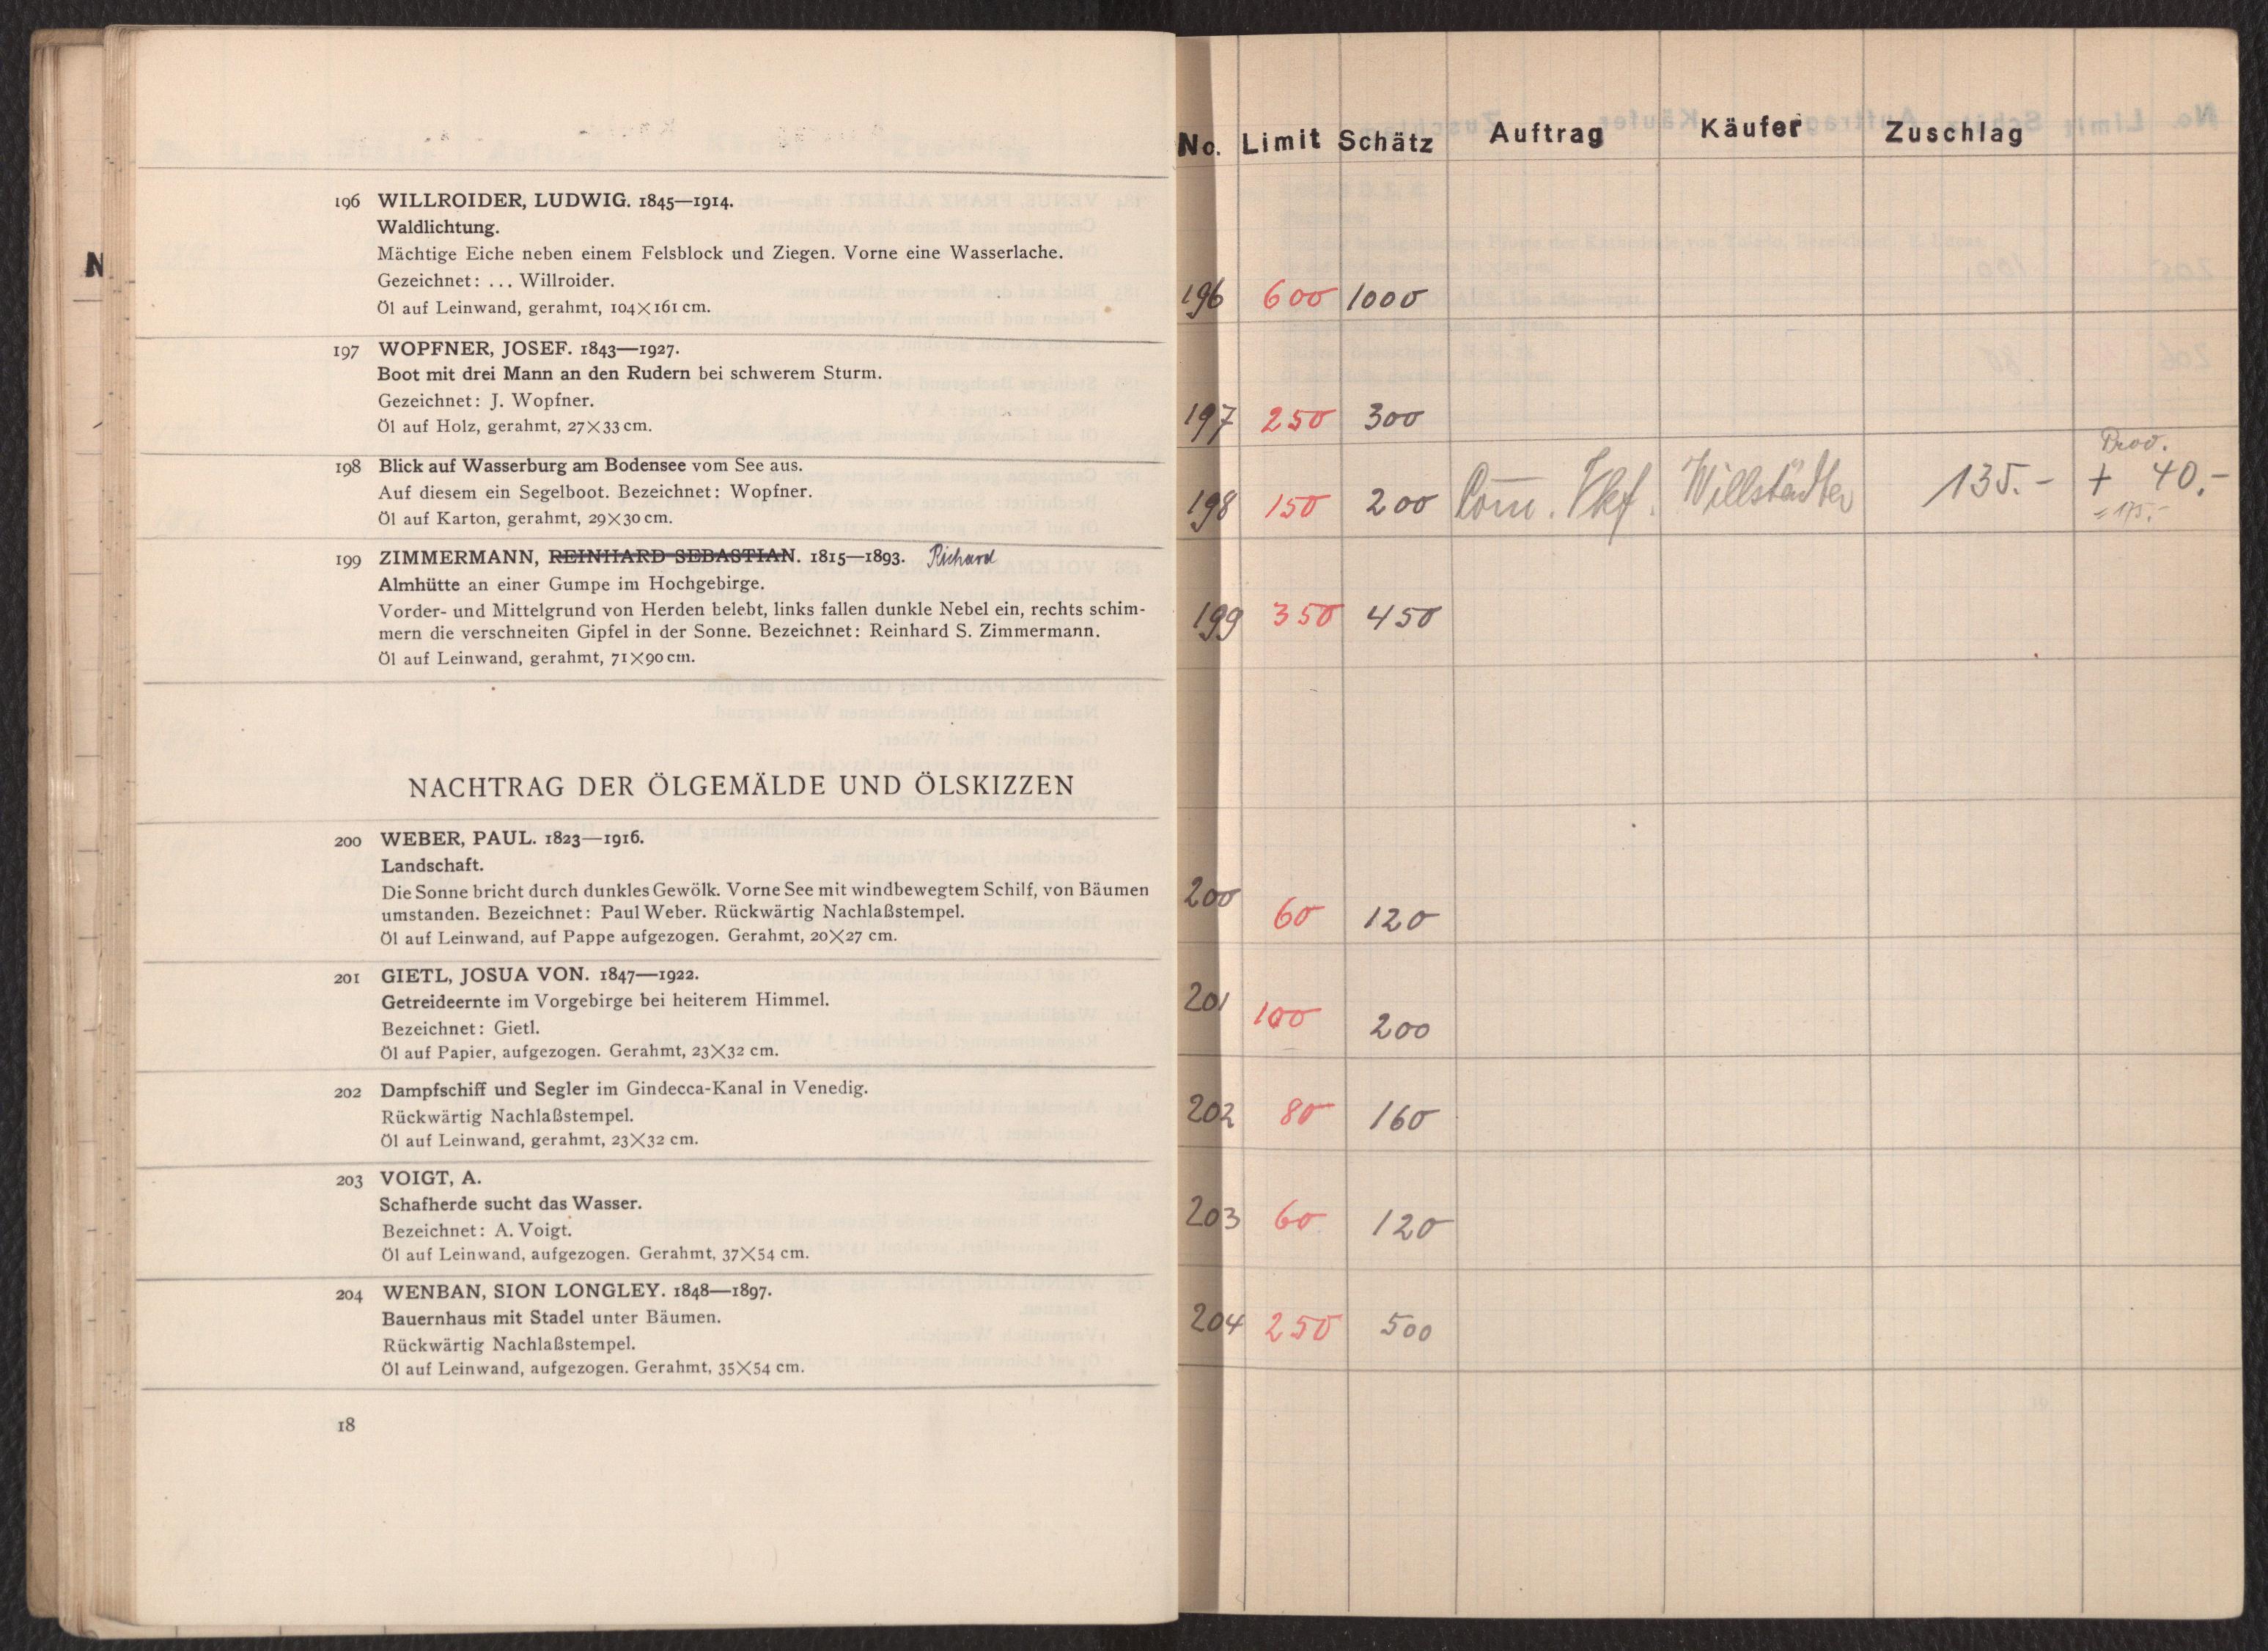 196 WILLROIDER, LUDWIG. 1845—1914.
Waldlichtung.
Mächtige Eiche neben einem Felsblock und Ziegen. Vorne eine Wasserlache.
Gezeichnet: ... Willroider.
Öl auf Leinwand, gerahmt, 104×161 cm.
197 WOPFNER, JOSEF. 1843—1927.
Boot mit drei Mann an den Rudern bei schwerem Sturm.
Gezeichnet: J. Wopfner.
Öl auf Holz, gerahmt, 27×33 cm.
198 Blick auf Wasserburg am Bodensee vom See aus.
Auf diesem ein Segelboot. Bezeichnet: Wopfner.
Öl auf Karton, gerahmt, 29×30 cm.
199 ZIMMERMANN, REINHARD SEBASTIAN. 1815—1893. Richard
Almhütte an einer Gumpe im Hochgebirge.
Vorder- und Mittelgrund von Herden belebt, links fallen dunkle Nebel ein, rechts schim-
mern die verschneiten Gipfel in der Sonne. Bezeichnet: Reinhard S. Zimmermann.
Öl auf Leinwand, gerahmt, 71×90 cm.
NACHTRAG DER ÖLGEMÄLDE UND ÖLSKIZZEN
200 WEBER, PAUL. 1823—1916.
Landschaft.
Die Sonne bricht durch dunkles Gewölk. Vorne See mit windbewegtem Schilf, von Bäumen
umstanden. Bezeichnet: Paul Weber. Rückwärtig Nachlaßstempel.
Öl auf Leinwand, auf Pappe aufgezogen. Gerahmt, 20×27 cm.
201 GIETL, JOSUA VON. 1847—1922.
Getreideernte im Vorgebirge bei heiterem Himmel.
Bezeichnet: Gietl.
Öl auf Papier, aufgezogen. Gerahmt, 23×32 cm.
202 Dampfschiff und Segler im Gindecca-Kanal in Venedig.
Rückwärtig Nachlaßstempel.
Öl auf Leinwand, gerahmt, 23×32 cm.
203 VOIGT, A.
Schafherde sucht das Wasser.
Bezeichnet: A. Voigt.
Öl auf Leinwand, aufgezogen. Gerahmt, 37×54 cm.
204 WENBAN, SION LONGLEY. 1848—1897.
Bauernhaus mit Stadel unter Bäumen.
Rückwärtig Nachlaßstempel.
Öl auf Leinwand, aufgezogen. Gerahmt, 35×54 cm.
18
No. Limit Schätz Auftrag Käufer Zuschlag
196 600 1000
197 250 300
Prov.
198 150 200 Com. Vkf. Willstädter 135.- + 40.-
= 175.-
199 350 450
200 60 120
201 100 200
202 80 160
203 60 120
204 250 500